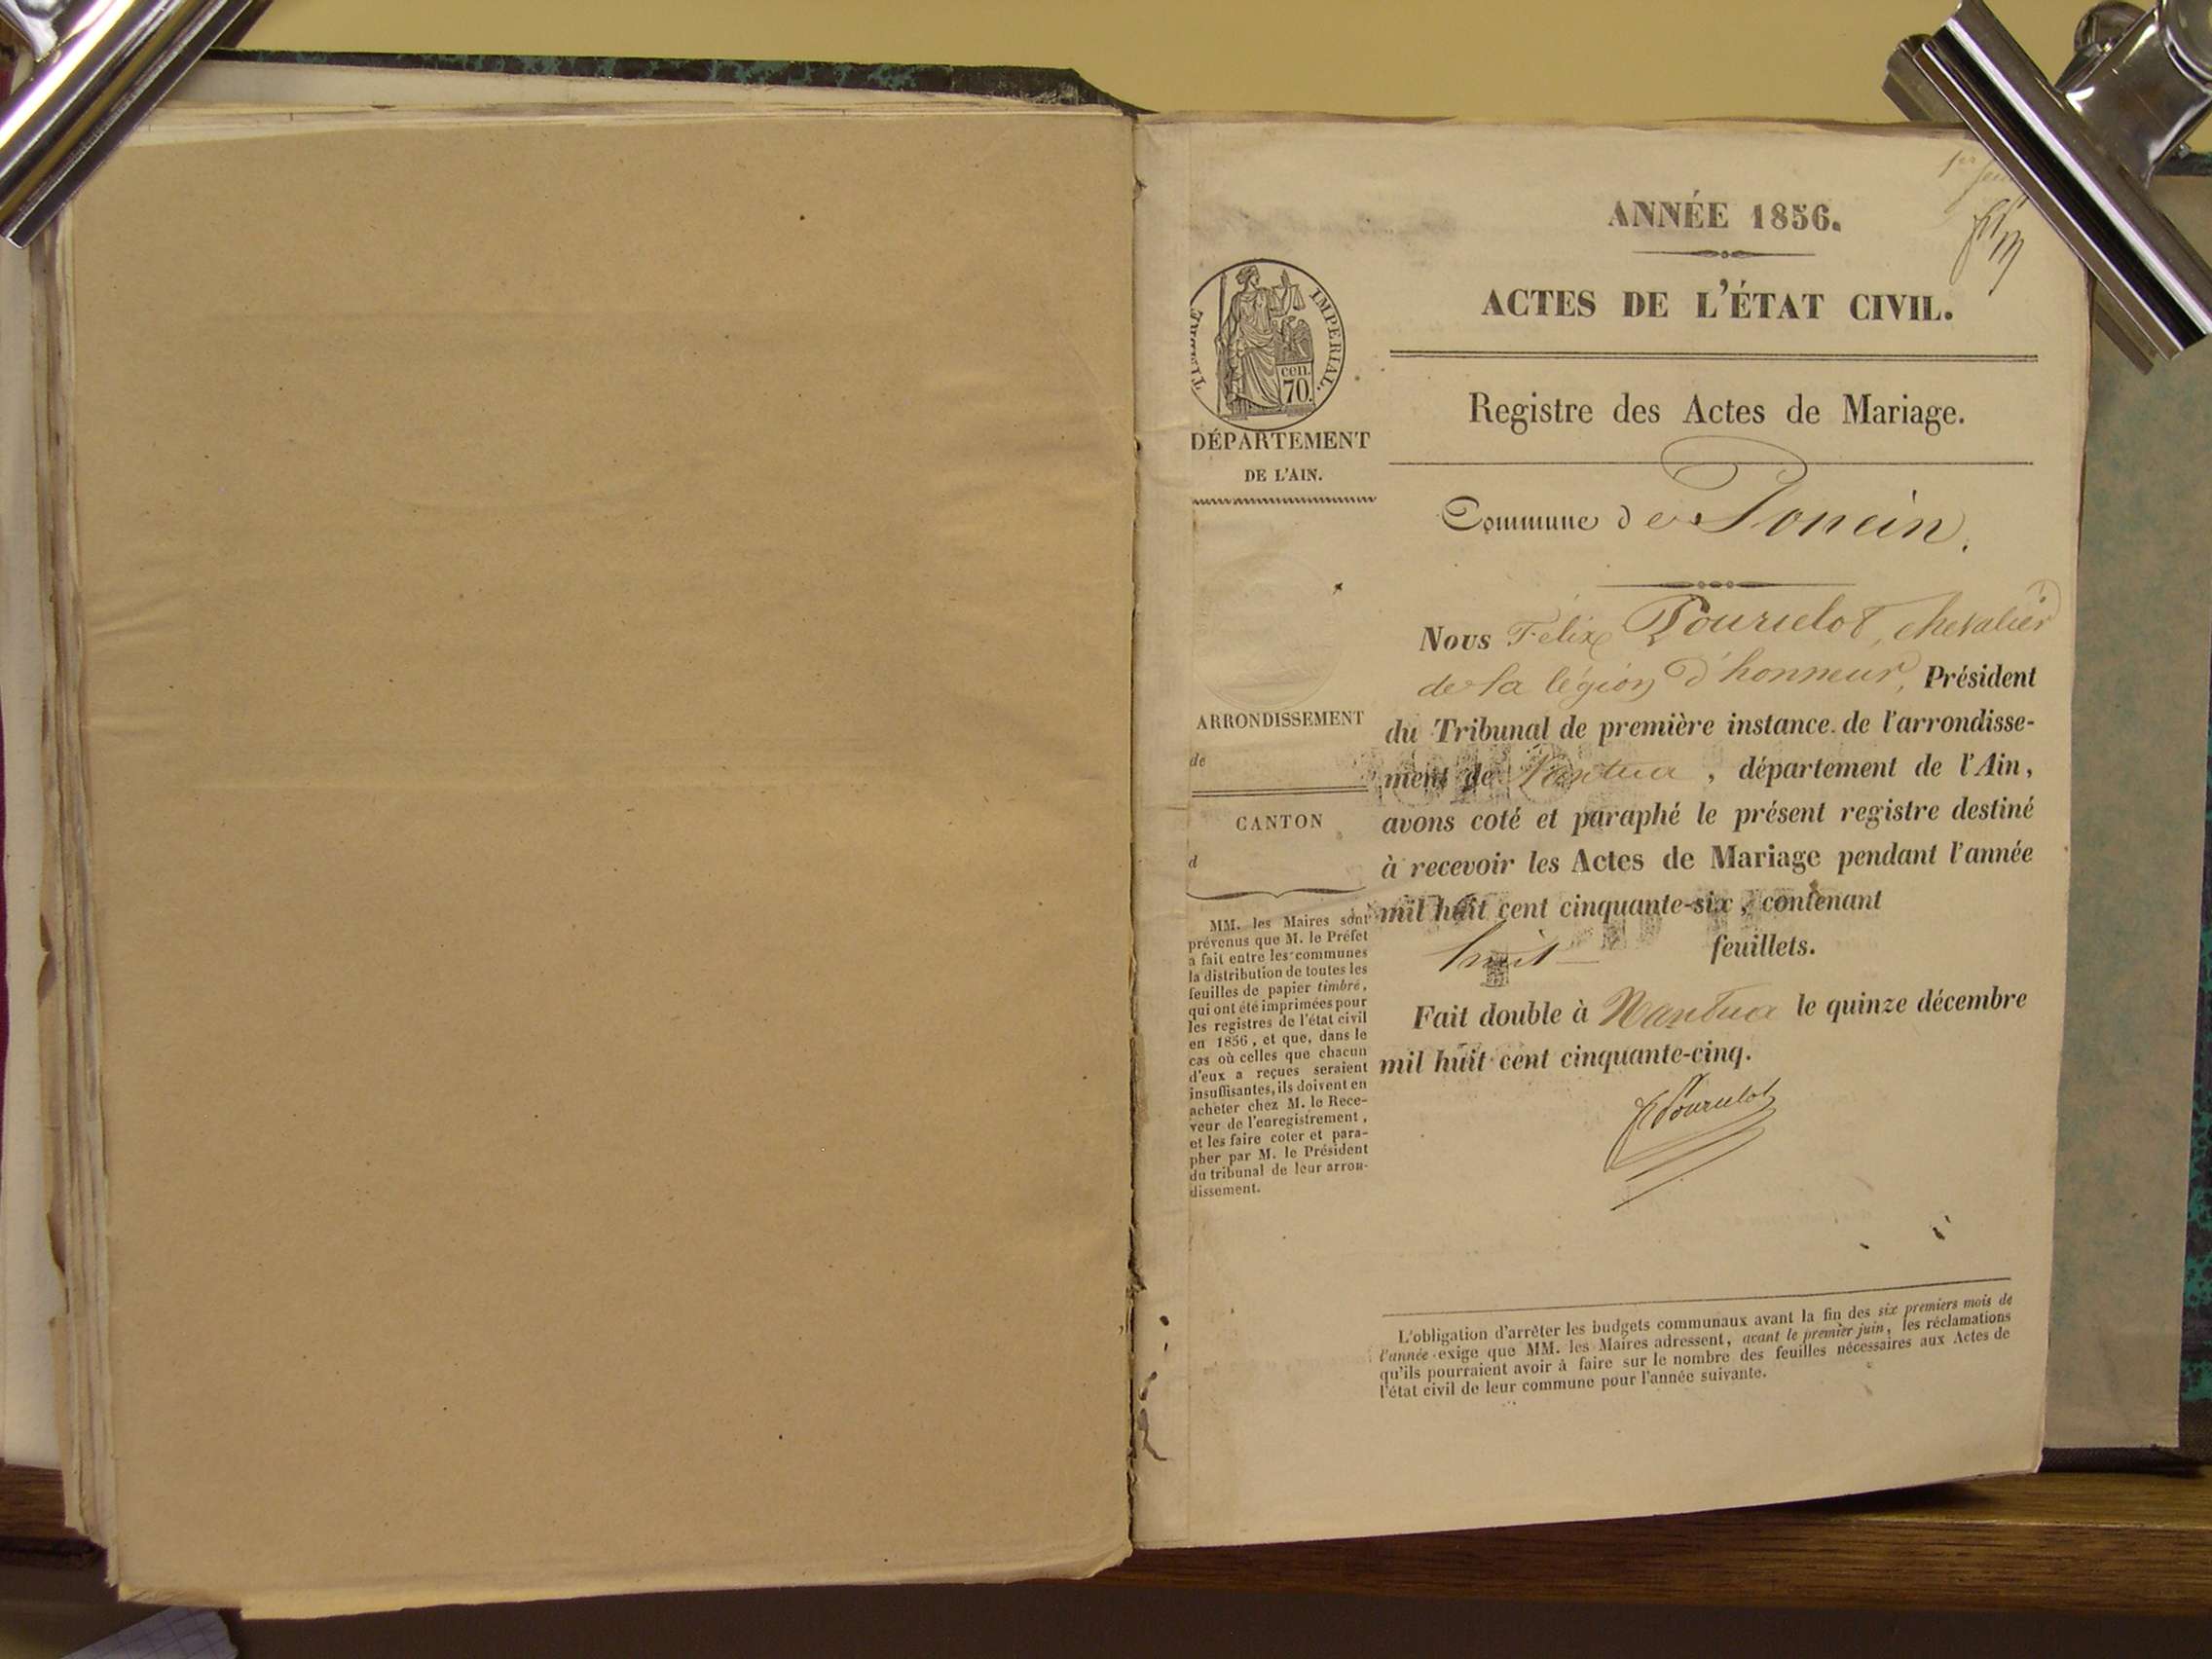 1er
ANNÉE 1856.
ACTES DE L'ÉTAT CIVIL.
TIMBRE IMPERIAL.
cen.
70.
DÉPARTEMENT
DE L'AIN.
Registre des Actes de Mariage.
Commune de Poncin.
ARRONDISSEMENT
de
CANTON
d
MM. les Maires sont
prévenus que M. le Préfet
a fait entre les communes
la distribution de toutes les
feuilles de papier timbré,
qui ont été imprimées pour
les registres de l'état civil
en 1856, et que, dans le
cas où celles que chacun
d'eux a reçues seraient
insuffisantes, ils doivent en
acheter chez M. le Rece-
veur de l'enregistrement,
et les faire coter et para-
pher par M. le Président
du tribunal de leur arron-
dissement.
Nous Félix Pourcelot, chevalier
de la légion d'honneur, Président
du Tribunal de première instance de l'arrondisse-
ment de Nantua, département de l'Ain,
avons coté et paraphé le présent registre destiné
à recevoir les Actes de Mariage pendant l'année
mil huit cent cinquante-six, contenant
huit feuillets.
Fait double à Nantua le quinze décembre
mil huit cent cinquante-cinq.
F Pourcelot
L'obligation d'arrêter les budgets communaux avant la fin des six premiers mois de
l'année exige que MM. les Maires adressent, avant le premier juin, les réclamations
qu'ils pourraient avoir à faire sur le nombre des feuilles nécessaires aux Actes de
l'état civil de leur commune pour l'année suivante.